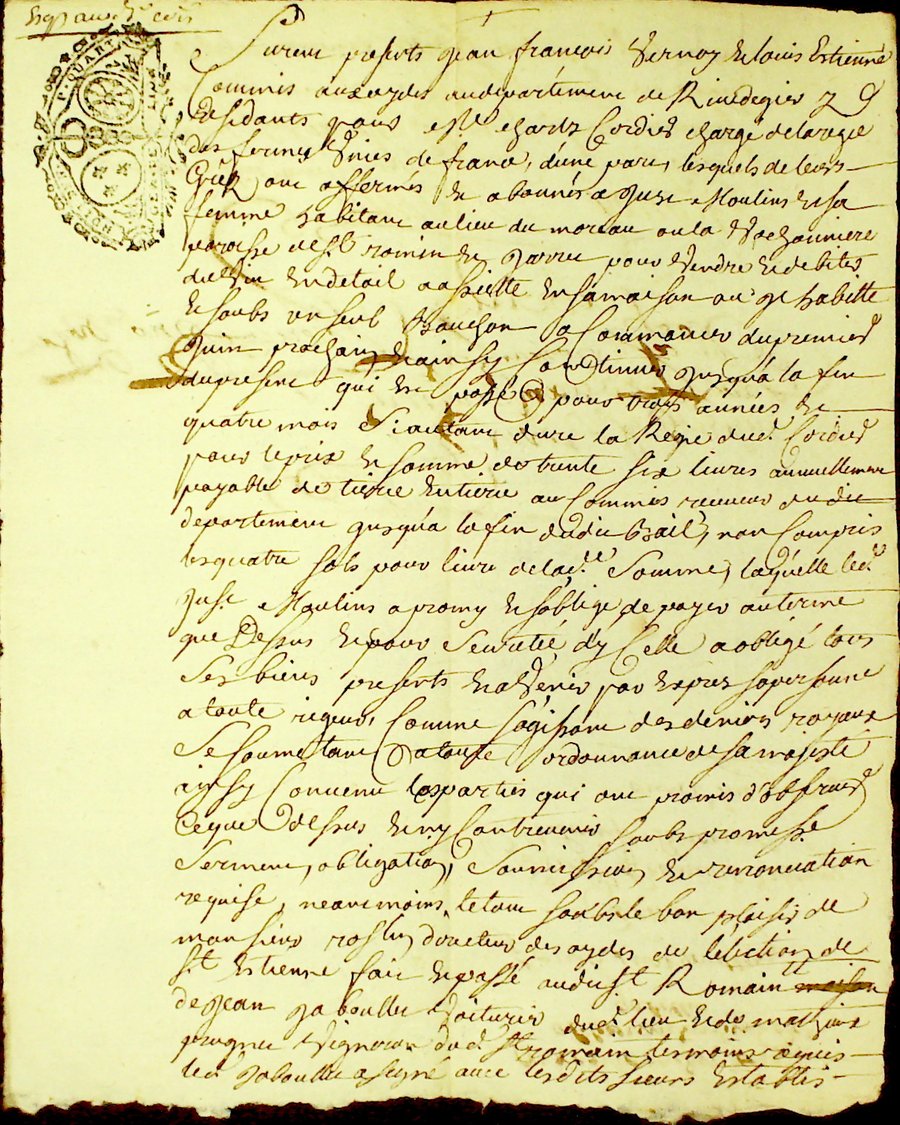 P. QUART
furent presents jean françois Vernoy et louis Estienne
Commis aux aydes au departement de Rivedegier
residants pour charles Cordier chargé de la regie
des fermes Unies de france, d'une part, lesquels de leurs
ont affermés et abonnés a Just Moulins et sa
femme habitant au lieu du moreau ou la
paroisse de st. romin en Jarres pour Vendre et debiter
du Vin en detail a assiette en sa maison ou il habitte
et soubs un seul Bouchon a Commancer du premier
Juin prochain et ainsy Continuer jusqu'a la fin
du present qui est passé pour trois années et
quatre mois si autant dure la Regie dud. Cordier
pour le prix et somme de trente six livres annuellement
payable de tierce en tierce au Commis receveur dudit
departement jusqu'a la fin dudit Bail, non Compris
les quatre sols pour livre de lad.e Somme, laquelle led.
Just Moulins a promy et s'oblige de payer au terme
que Dessus et pour Seureté d'y Celle a obligé tous
Ses biens presents et a Venir par Exprès sa personne
a toute rigeur, Comme s'agissant des deniers royaux
Se soumettant a toute ordonnance de sa majesté
ainsy Convenu les parties qui ont promis d'observer
Ce que Dessus et n'y Contrevenir soubs promesse
Serment, obligation, Soumission, et renonciation
requise, neantmoins le tout soubs le bon plaisir de
monsieur directeur des aydes de l'election de
st. Estienne fait et passé audit st. Romain maison
de Jean Jaboulle Voiturier dud. lieu et de mathieu
Vigneron dud. st. romain temoins requis
led. Jaboulle a signé avec lesdits sieurs Establis